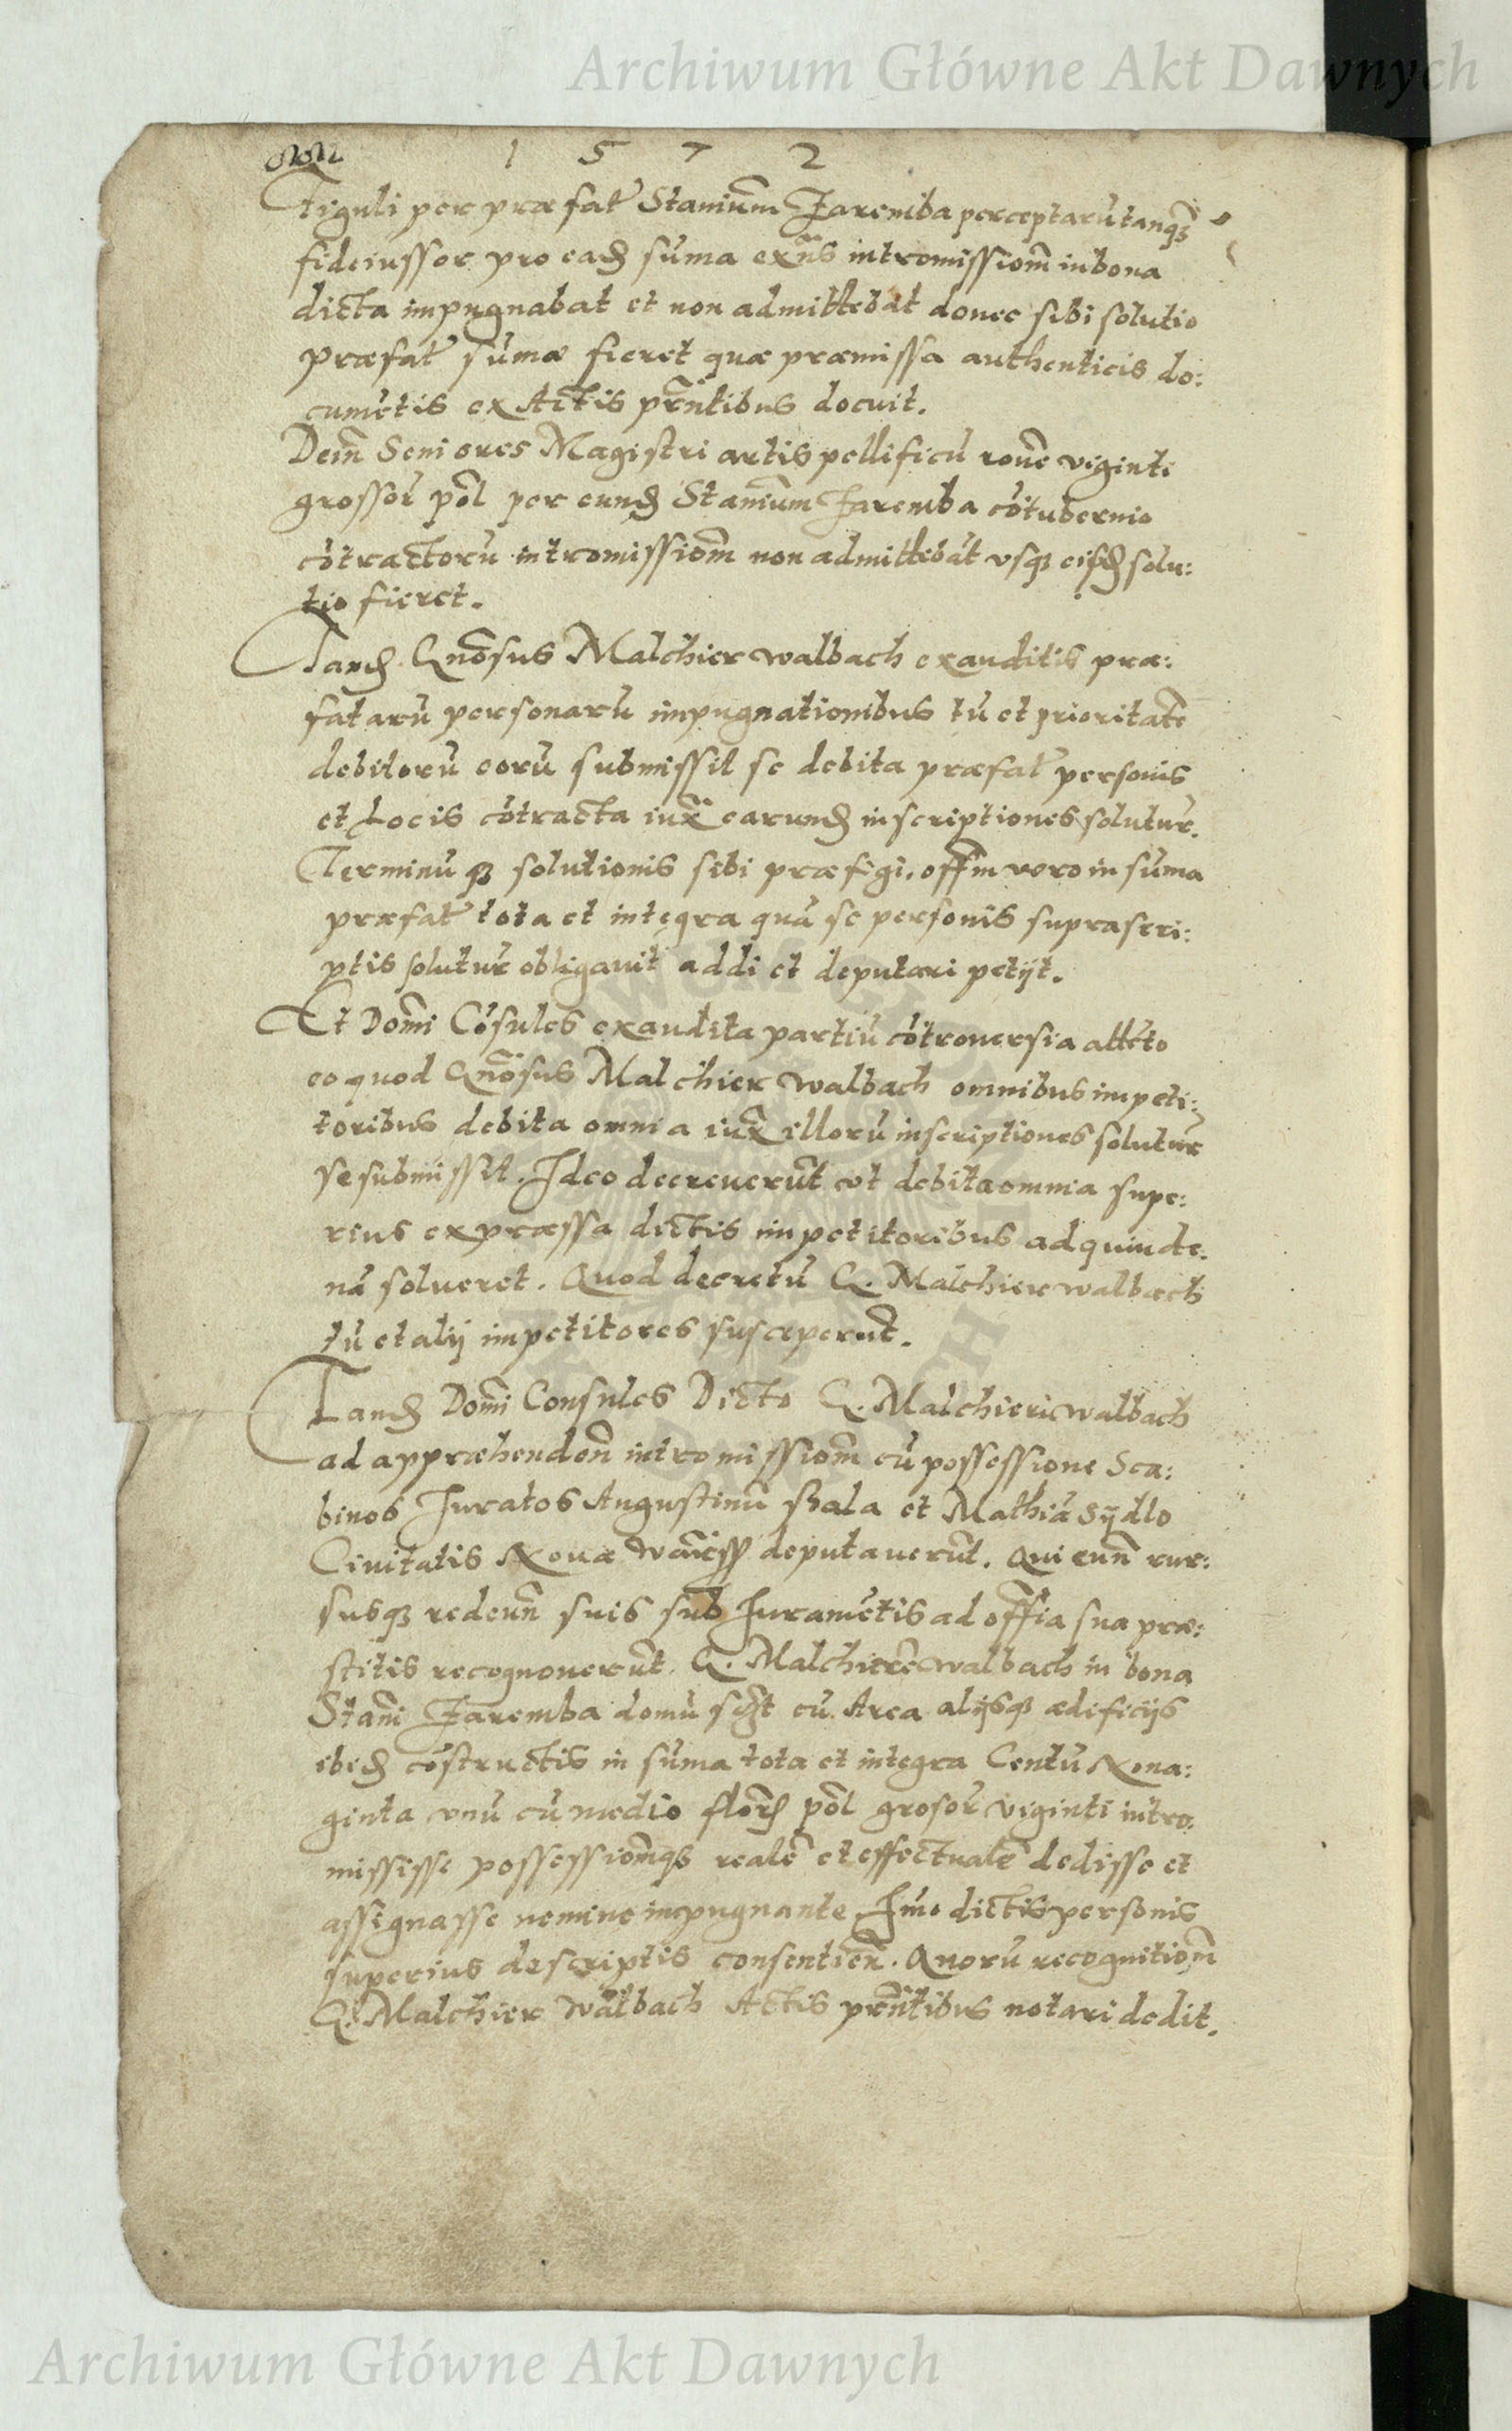 Archiwum Główne Akt Dawnych
1 5 7 2
Figuli per præfat̃ Stanium̃ Zaremba perceptarũ tanq̃ȝ
fideiussor pro eadȝ sũma exñs intromissiom̃ in bona
dicta impugnabat et non admittebat donec sibi solutio
præfat̃ sũmæ fieret quæ præmissa authenticis do:
cumẽtis ex Actis prñtibus docuit.
Dein̄ Seniores Magistri artis pellificũ rõne viginti
grossoȓ põl per eundȝ Stanium̃ Zaremba cõtubernio
cõtractorũ intromissiom̃ non admittebãt vsqȝ eisdȝ solu:
tio fieret.
Tandȝ. Gnõsus Malchier walbach exauditis præ:
fatarũ personarũ impugnationibus tũ et prioritatẽ
debitorũ eorũ submissit se debita præfat̃ personis
et Locis cõtracta iux̃ earundȝ inscriptiones solutur̃.
Terminũ qȝ solutionis sibi præfigi, offm̃ vero in sũma
præfat̃ tota et integra quã se personis suprascri:
ptis solutur̃ obligauit addi et deputari petijt.
Et Dom̃i Cõsules exaudita partiũ cõtrouersia attẽto
eo quod Gnõsus Malchier walbach omnibus impeti:
toribus debita omnia iux̃ illorũ inscriptiones solutur̃
se submissit. Ideo decreuerũt vt debita omnia supe:
rius expræssa dictis impetitoribus ad quinde:
nã solueret. Quod decretũ G. Malchier walbach
tũ et alij impetitores susceperũt.
Tandȝ Dom̃i Consules Dicto G. Malchieri walbach
ad appræhenden̄ intromissiom̃ cũ possessione Sca:
binos Iuratos Augustinũ Skala et Mathiã Sydlo
Ciuitatis Nouæ deputauerũt. Qui eun̄ rur:
susqȝ redeun̄ suis sub Iuramẽtis ad offia sua præ:
stitis recognouerũt. G. Malchierẽ walbach in bona
Stani Zaremba domũ sct̃ cũ Area alijsqȝ ædificijs
ibidȝ cõstructis in sũma tota et integra Centũ Nona:
ginta vnũ cũ medio floȓ põl grosoȓ viginti intro:
mississe possessiom̃qȝ realẽ et effectualẽ dedisse et
assignasse nemine impugnante Im̃o dictis personis
superius descriptis consentien̄. Quorũ recognitiom̃
G. Malchier walbach Actis prñtibus notari dedit.
Archiwum Główne Akt Dawnych